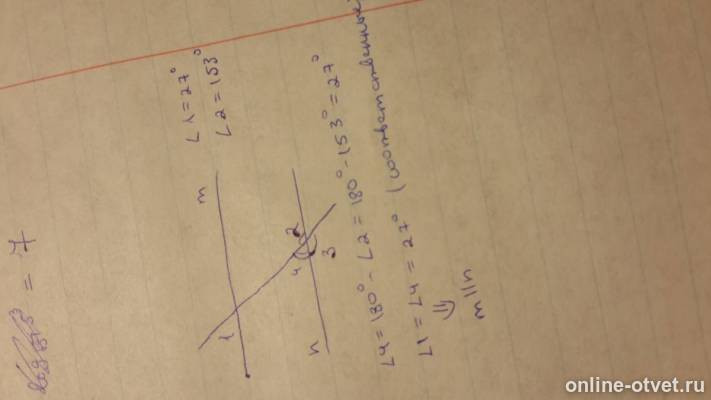 = 7
∠1 = 27°
∠2 = 153°
m
n
1
2
3
4
∠4 = 180° - ∠2 = 180° - 153° = 27°
∠1 = ∠4 = 27° (соответственные
⇓
m || n
online-otvet.ru